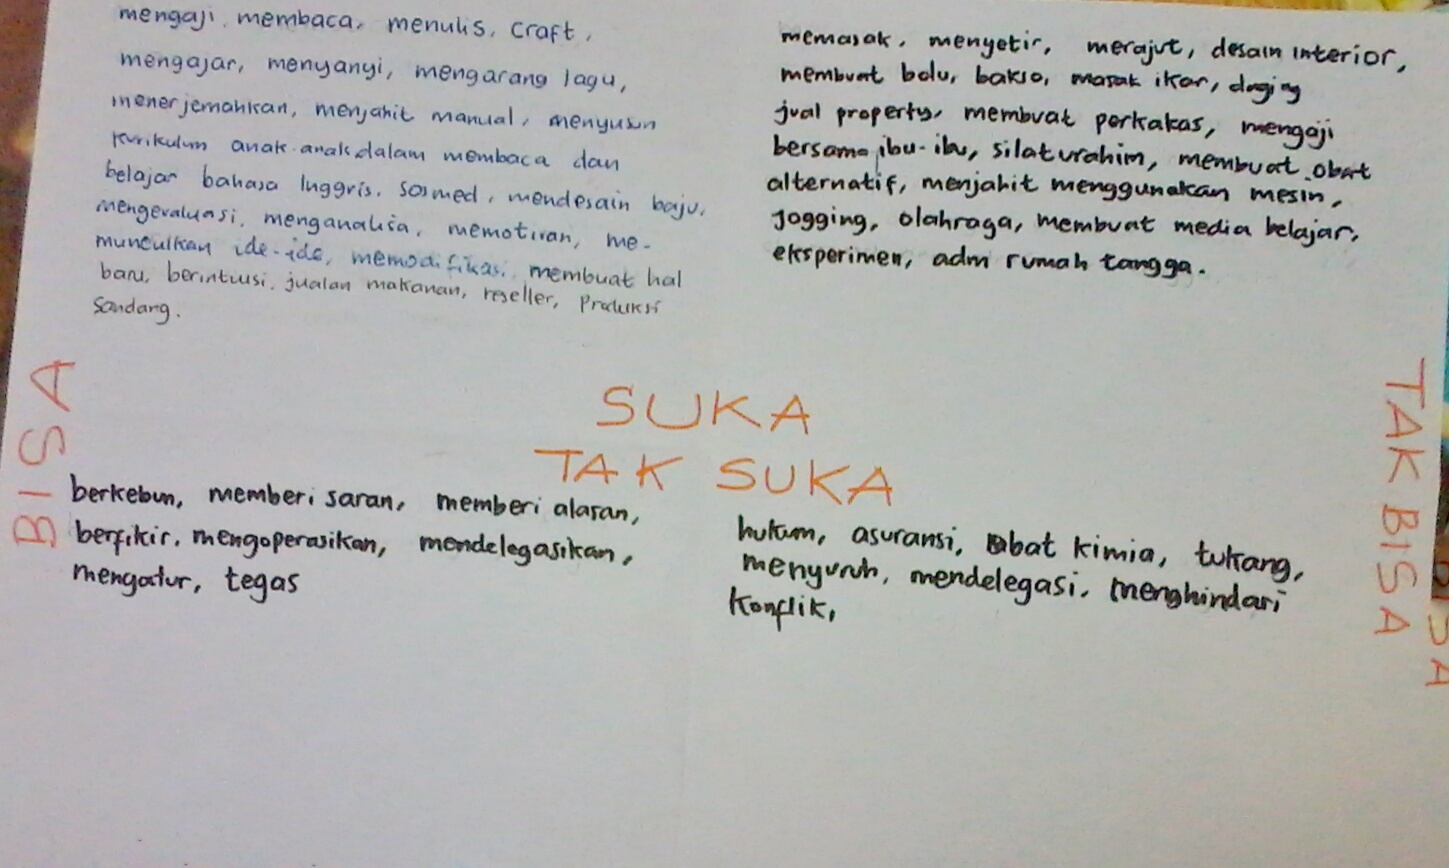 mengaji, membaca, menulis, craft,
mengajar, menyanyi, mengarang lagu,
menerjemahkan, menjahit manual, menyusun
kurikulum anak-anak dalam membaca dan
belajar bahasa Inggris, sosmed, mendesain baju,
mengevaluasi, menganalisa, memotivan, me-
munculkan ide-ide, memodifikasi, membuat hal
baru, berintuisi, jualan makanan, reseller, Produksi
Sandang.
memasak, menyetir, merajut, desain interior,
membuat bolu, bakso, masak ikan, daging
jual property, membuat perkakas, mengaji
bersama ibu-ibu, silaturahim, membuat obat
alternatif, menjahit menggunakan mesin,
jogging, olahraga, membuat media belajar,
eksperimen, adm rumah tangga.
BISA
SUKA
TAK SUKA
TAK BISA
berkebun, memberi saran, memberi alasan,
berfikir, mengoperasikan, mendelegasikan,
mengatur, tegas
hukum, asuransi, obat kimia, tukang,
menyuruh, mendelegasi, menghindari
konflik,